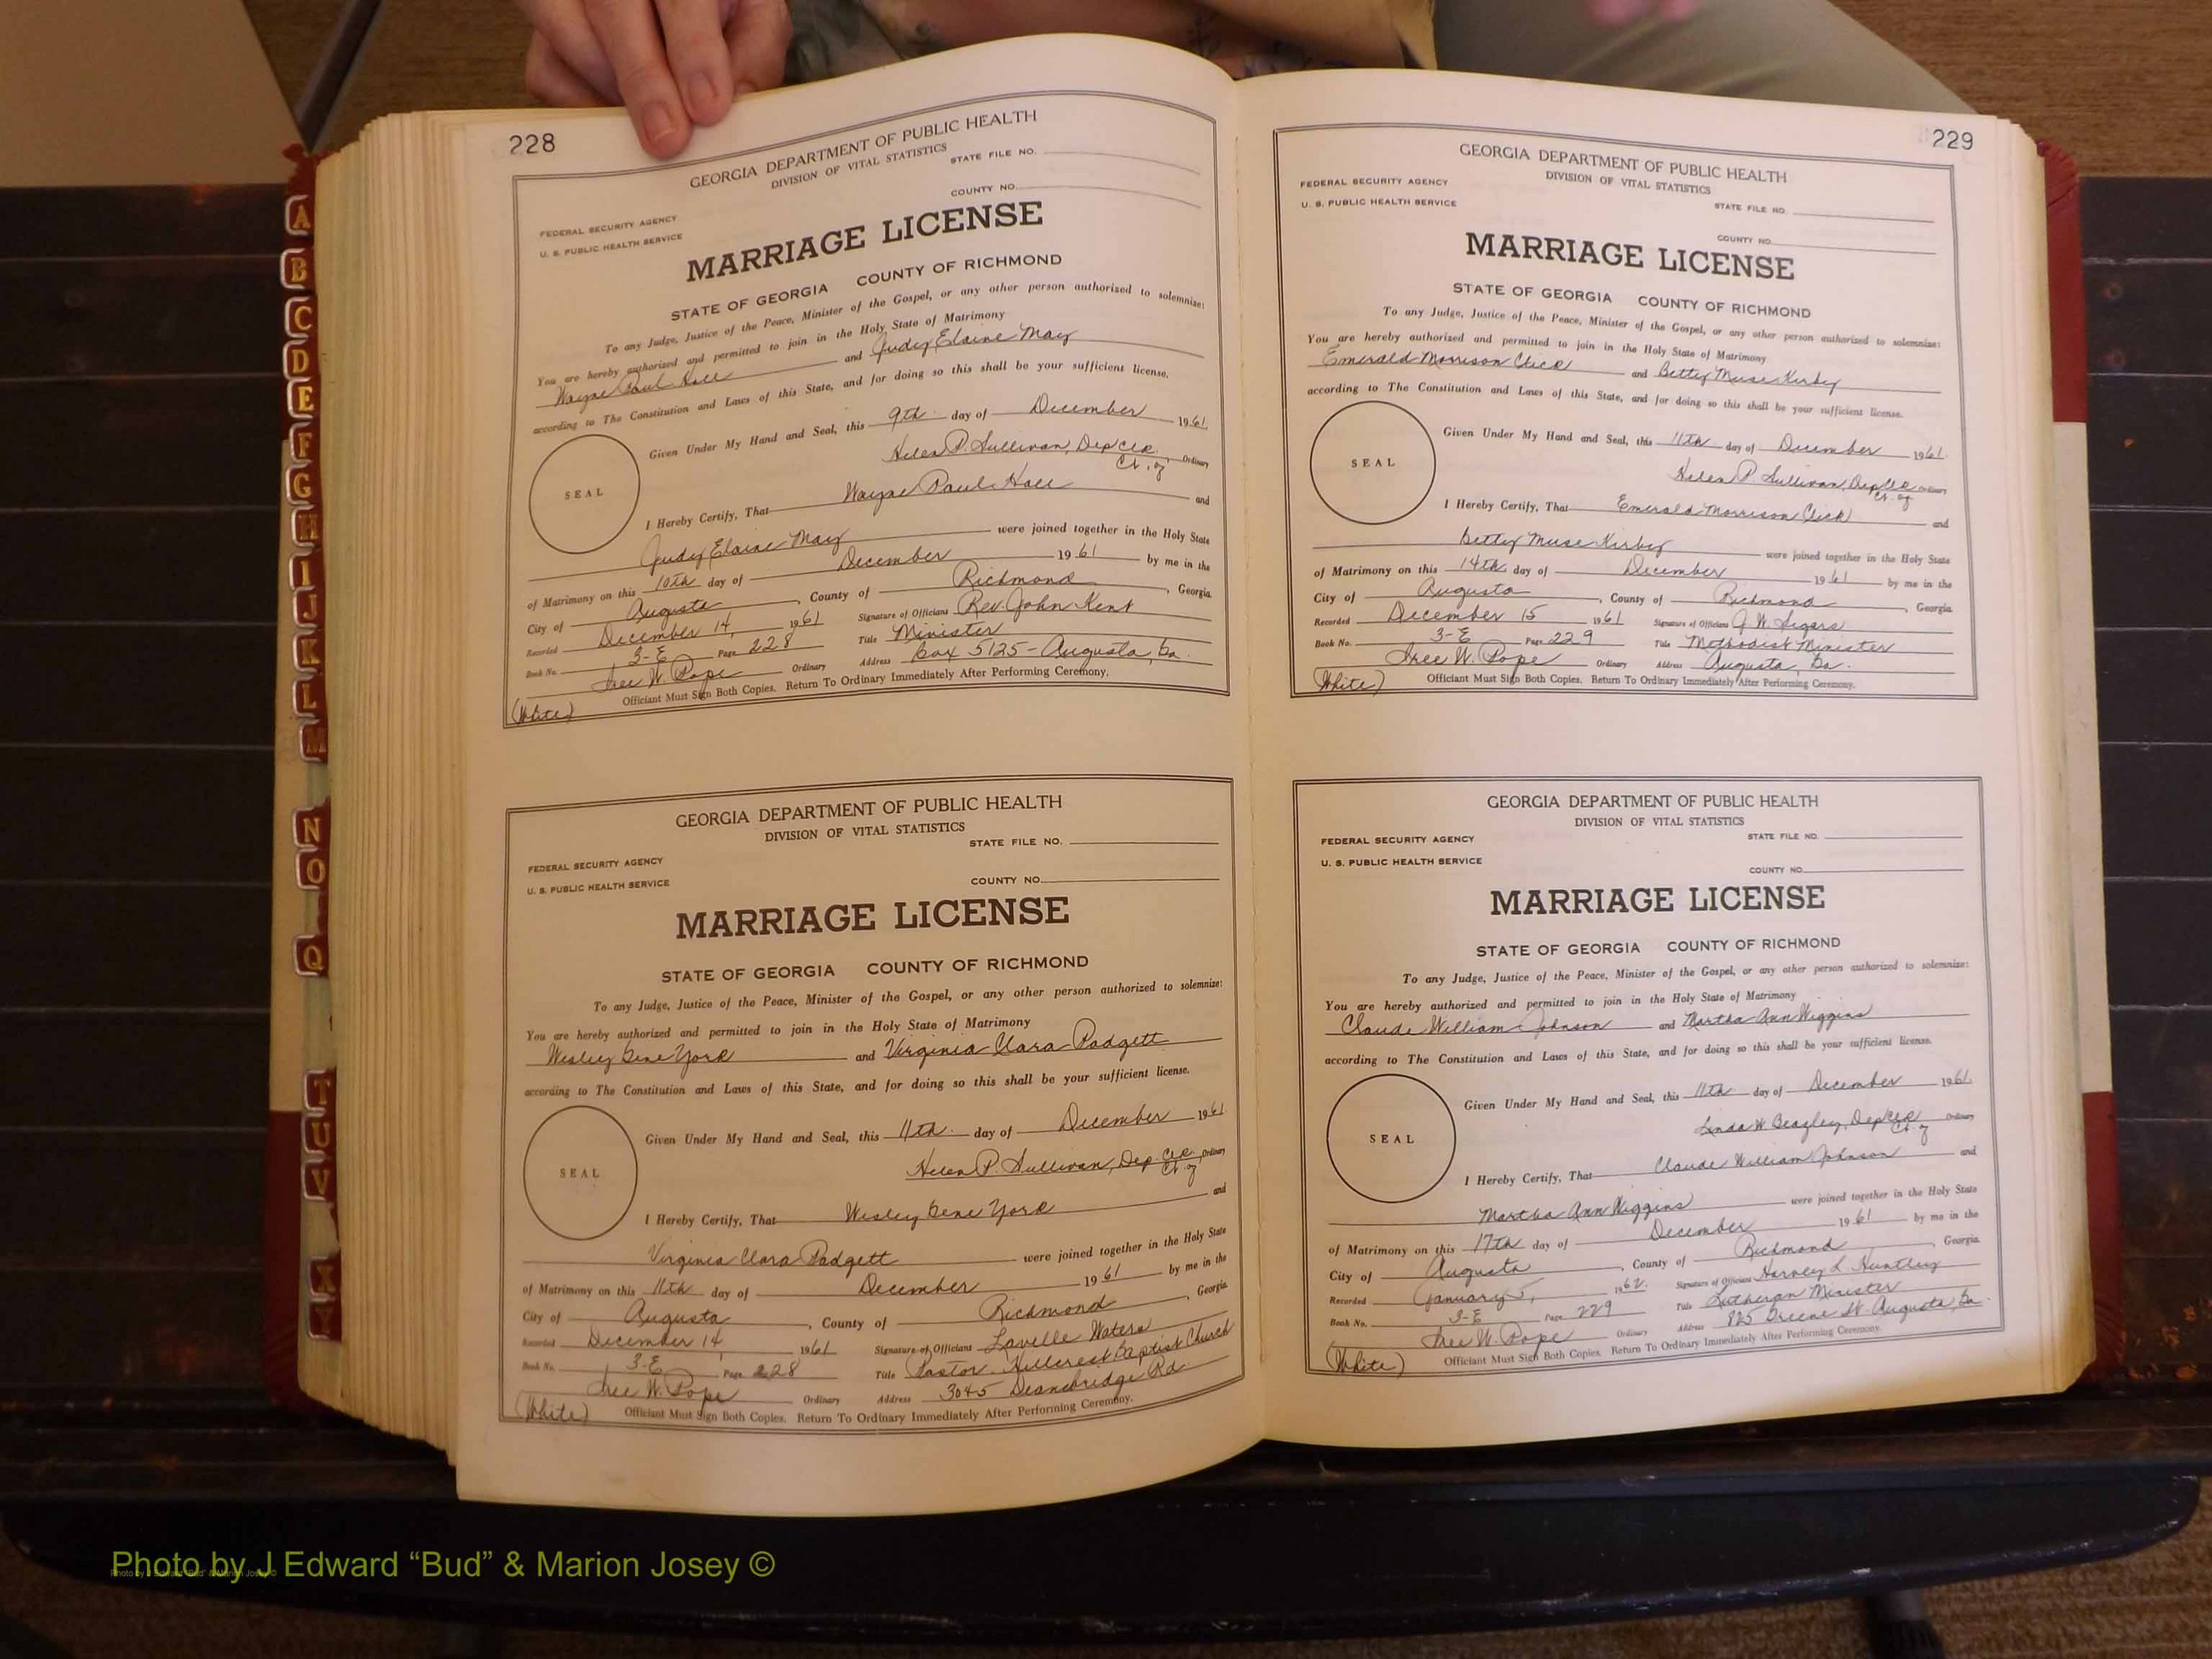 228
GEORGIA DEPARTMENT OF PUBLIC HEALTH
DIVISION OF VITAL STATISTICS
STATE FILE NO.
COUNTY NO.
FEDERAL SECURITY AGENCY
U. S. PUBLIC HEALTH SERVICE
MARRIAGE LICENSE
STATE OF GEORGIA COUNTY OF RICHMOND
To any Judge, Justice of the Peace, Minister of the Gospel, or any other person authorized to solemnize:
You are hereby authorized and permitted to join in the Holy State of Matrimony
Wayne Paul Hall and Judy Elaine May
according to The Constitution and Laws of this State, and for doing so this shall be your sufficient license.
Given Under My Hand and Seal, this 9th day of December 1961
Helen P. Sullivan, Dep Clk Ordinary
Ct. of
SEAL
I Hereby Certify, That Wayne Paul Hall and
Judy Elaine May were joined together in the Holy State
of Matrimony on this 10th day of December 1961 by me in the
City of Augusta, County of Richmond, Georgia.
Recorded December 14, 1961 Signature of Officiant Rev. John Kent
Book No. 3-E Page 228 Title Minister
Iree W. Pope Ordinary Address Box 5125 - Augusta, Ga.
(White) Officiant Must Sign Both Copies. Return To Ordinary Immediately After Performing Ceremony.
GEORGIA DEPARTMENT OF PUBLIC HEALTH
DIVISION OF VITAL STATISTICS
STATE FILE NO.
FEDERAL SECURITY AGENCY
U. S. PUBLIC HEALTH SERVICE
COUNTY NO.
MARRIAGE LICENSE
STATE OF GEORGIA COUNTY OF RICHMOND
To any Judge, Justice of the Peace, Minister of the Gospel, or any other person authorized to solemnize:
You are hereby authorized and permitted to join in the Holy State of Matrimony
Wesley Gene York and Virginia Clara Padgett
according to The Constitution and Laws of this State, and for doing so this shall be your sufficient license.
Given Under My Hand and Seal, this 11th day of December 1961
Helen P. Sullivan, Dep. Clk. Ordinary
Ct. of
SEAL
I Hereby Certify, That Wesley Gene York and
Virginia Clara Padgett were joined together in the Holy State
of Matrimony on this 11th day of December 1961 by me in the
City of Augusta, County of Richmond, Georgia.
Recorded December 14, 1961 Signature of Officiant Lavelle Waters
Book No. 3-E Page 228 Title Pastor Hillcrest Baptist Church
Iree W. Pope Ordinary Address 3045 Deansbridge Rd
(White) Officiant Must Sign Both Copies. Return To Ordinary Immediately After Performing Ceremony.
229
GEORGIA DEPARTMENT OF PUBLIC HEALTH
DIVISION OF VITAL STATISTICS
FEDERAL SECURITY AGENCY
U. S. PUBLIC HEALTH SERVICE
STATE FILE NO.
COUNTY NO.
MARRIAGE LICENSE
STATE OF GEORGIA COUNTY OF RICHMOND
To any Judge, Justice of the Peace, Minister of the Gospel, or any other person authorized to solemnize:
You are hereby authorized and permitted to join in the Holy State of Matrimony
Emerald Morrison Click and Betty Muse Kirby
according to The Constitution and Laws of this State, and for doing so this shall be your sufficient license.
Given Under My Hand and Seal, this 11th day of December 1961
Helen P. Sullivan, Dep Clk Ordinary
Ct. of
SEAL
I Hereby Certify, That Emerald Morrison Click and
Betty Muse Kirby were joined together in the Holy State
of Matrimony on this 14th day of December 1961 by me in the
City of Augusta, County of Richmond, Georgia.
Recorded December 15 1961 Signature of Officiant J. W. Segars
Book No. 3-E Page 229 Title Methodist Minister
Iree W. Pope Ordinary Address Augusta, Ga.
(White) Officiant Must Sign Both Copies. Return To Ordinary Immediately After Performing Ceremony.
GEORGIA DEPARTMENT OF PUBLIC HEALTH
DIVISION OF VITAL STATISTICS
FEDERAL SECURITY AGENCY
STATE FILE NO.
U. S. PUBLIC HEALTH SERVICE
COUNTY NO.
MARRIAGE LICENSE
STATE OF GEORGIA COUNTY OF RICHMOND
To any Judge, Justice of the Peace, Minister of the Gospel, or any other person authorized to solemnize:
You are hereby authorized and permitted to join in the Holy State of Matrimony
Claude William Johnson and Martha Ann Wiggins
according to The Constitution and Laws of this State, and for doing so this shall be your sufficient license.
Given Under My Hand and Seal, this 11th day of December 1961
Linda W. Beazley, Dep Clk Ordinary
Ct. of
SEAL
I Hereby Certify, That Claude William Johnson and
Martha Ann Wiggins were joined together in the Holy State
of Matrimony on this 17th day of December 1961 by me in the
City of Augusta, County of Richmond, Georgia.
Recorded January 5, 1962. Signature of Officiant Harvey L. Huntley
Book No. 3-E Page 229 Title Lutheran Minister
Iree W. Pope Ordinary Address 825 Greene St. Augusta, Ga.
(White) Officiant Must Sign Both Copies. Return To Ordinary Immediately After Performing Ceremony.
A
B
C
D
E
F
G
H
I
J
K
L
M
N
O
Q
T
U
V
X
Y
Photo by J Edward “Bud” & Marion Josey ©
Photo by J Edward “Bud” & Marion Josey ©